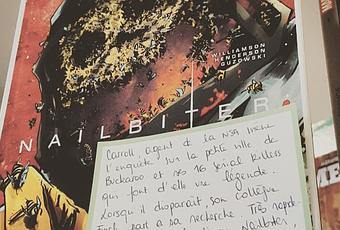 WILLIAMSON
HENDERSON
GUZOWSKI
NAILBITER
Carroll, agent de la NSA mène
l'enquête sur la petite ville de
Buckaroo et ses 16 serial killers
qui font d'elle une légende.
Lorsqu'il disparaît, son collègue
Finch part à sa recherche. Très
Nailbiter,